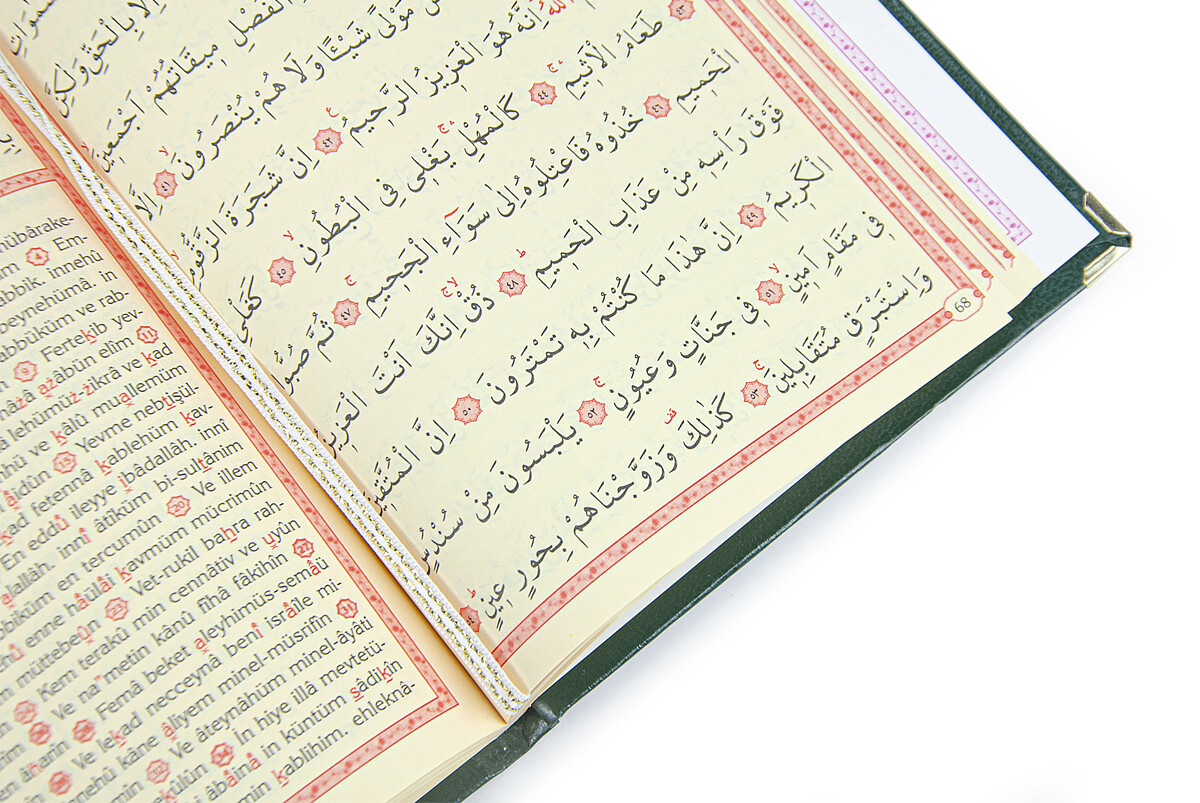 اِلَّا بِالْحَقِّ وَلٰكِنَّ
الْفَصْلِ مِيقَاتُهُمْ اَجْمَعِينَ
مَوْلًى شَيْـًٔا وَلَا هُمْ يُنْصَرُونَ ٤١ اِلَّا
اللّٰهُ اِنَّهُ هُوَ الْعَزِيزُ الرَّحِيمُ ٤٢ اِنَّ شَجَرَةَ الزَّقُّومِ
٤٣ طَعَامُ الْاَثِيمِ ٤٤ كَالْمُهْلِ يَغْلِي فِي الْبُطُونِ ٤٥ كَغَلْيِ
الْحَمِيمِ ٤٦ خُذُوهُ فَاعْتِلُوهُ اِلٰى سَوَٓاءِ الْجَحِيمِ ٤٧ ثُمَّ صُبُّوا
فَوْقَ رَأْسِهِ مِنْ عَذَابِ الْحَمِيمِ ٤٨ ذُقْ اِنَّكَ اَنْتَ الْعَزِيزُ
الْكَرِيمُ ٤٩ اِنَّ هٰذَا مَا كُنْتُمْ بِهِ تَمْتَرُونَ ٥٠ اِنَّ الْمُتَّقِينَ
فِي مَقَامٍ اَمِينٍ ٥١ فِي جَنَّاتٍ وَعُيُونٍ ٥٢ يَلْبَسُونَ مِنْ سُنْدُسٍ
وَاِسْتَبْرَقٍ مُتَقَابِلِينَ ٥٣ كَذٰلِكَ وَزَوَّجْنَاهُمْ بِحُورٍ عِينٍ ٥٤
68
mübârake-
4 Em-
rabbik. innehû
beynehümâ. in
rabbüküm ve rab-
9 Fertekib yev-
azâbün elîm 11
lehümüz-zikrâ ve kad
ve kâlû muallemüm
15 Yevme nebtişül-
kad fetennâ kablehüm kav-
En eddû ileyye ibâdallâh. innî
alallâh. innî âtîküm bi-sultânim
en tercumûn 20 Ve illem
enne hâülâi kavmüm mücrimûn
müttebeûn 23 Vet-rukil bahra rah-
Kem terakû min cennâtiv ve uyûn
Ve na'metin kânû fîhâ fâkihîn 27
Femâ beket aleyhimüs-semâü
Ve lekad necceynâ benî isrâîle mi-
kâne âliyem minel-müsrifîn 31
Ve âteynâhüm minel-âyâti
34 İn hiye illâ mevtetü-
in küntüm sâdikîn
min kablihim. ehleknâ-